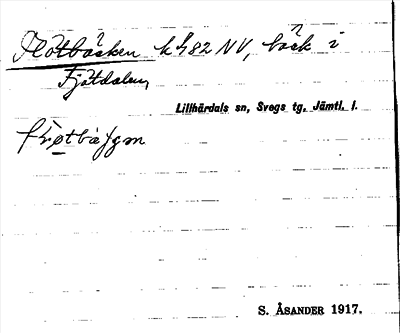 Flötbäcken k 482 NV, bäck i
Fjätdalen,
Lillhärdals sn, Svegs tg, Jämtl. l.
S. ÅSANDER 1917.